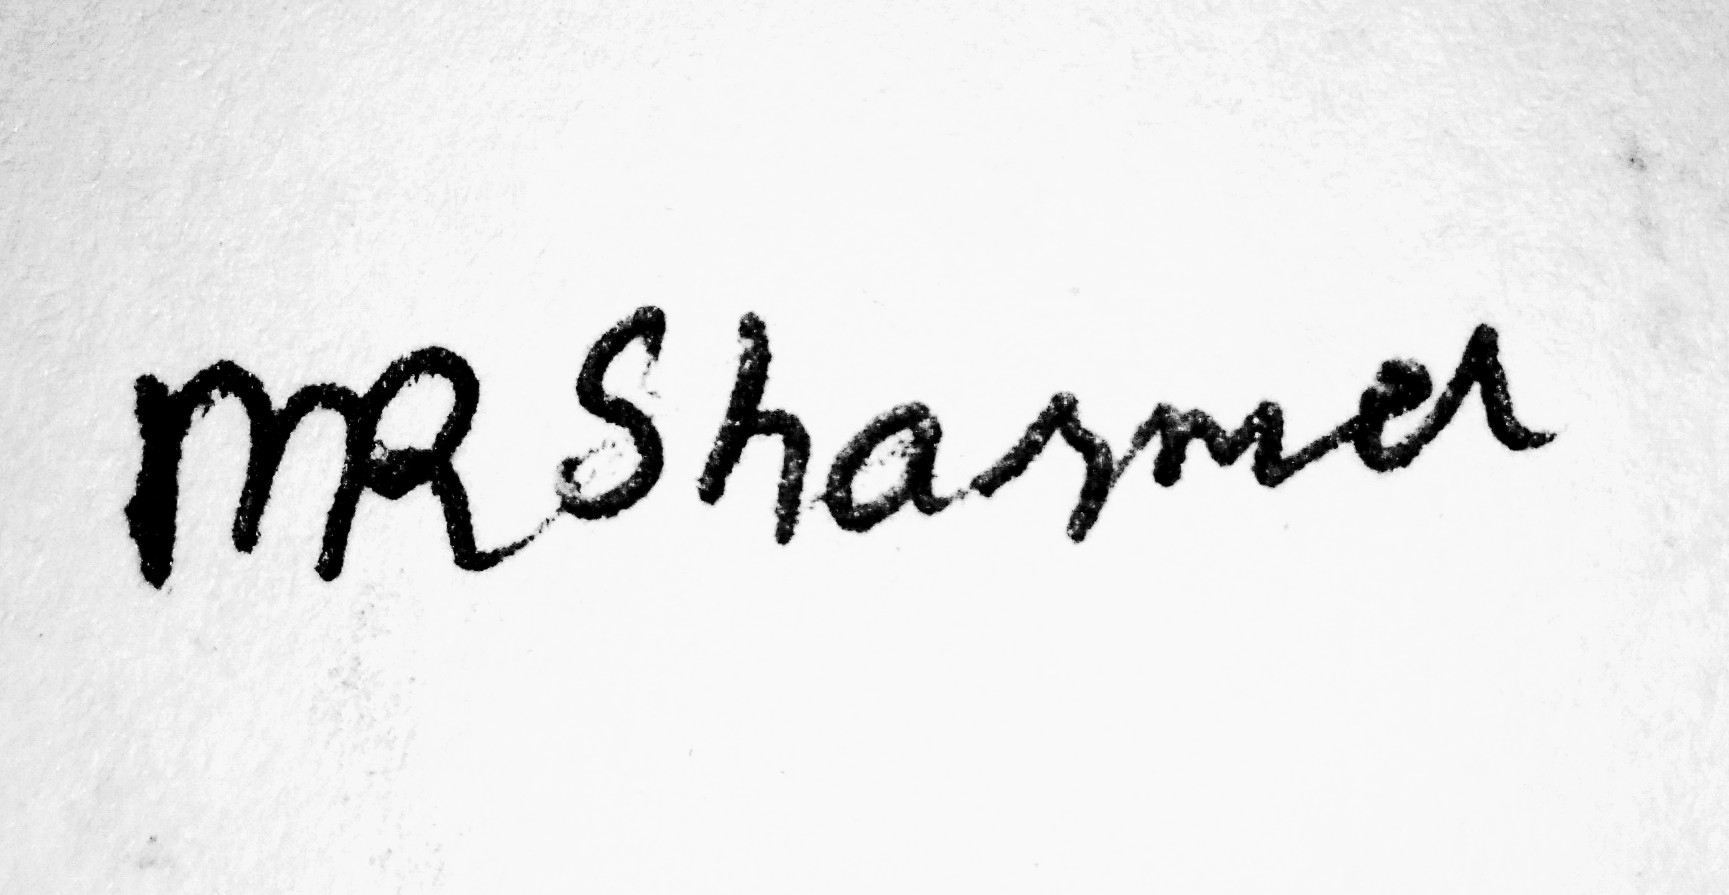 MR Sharma